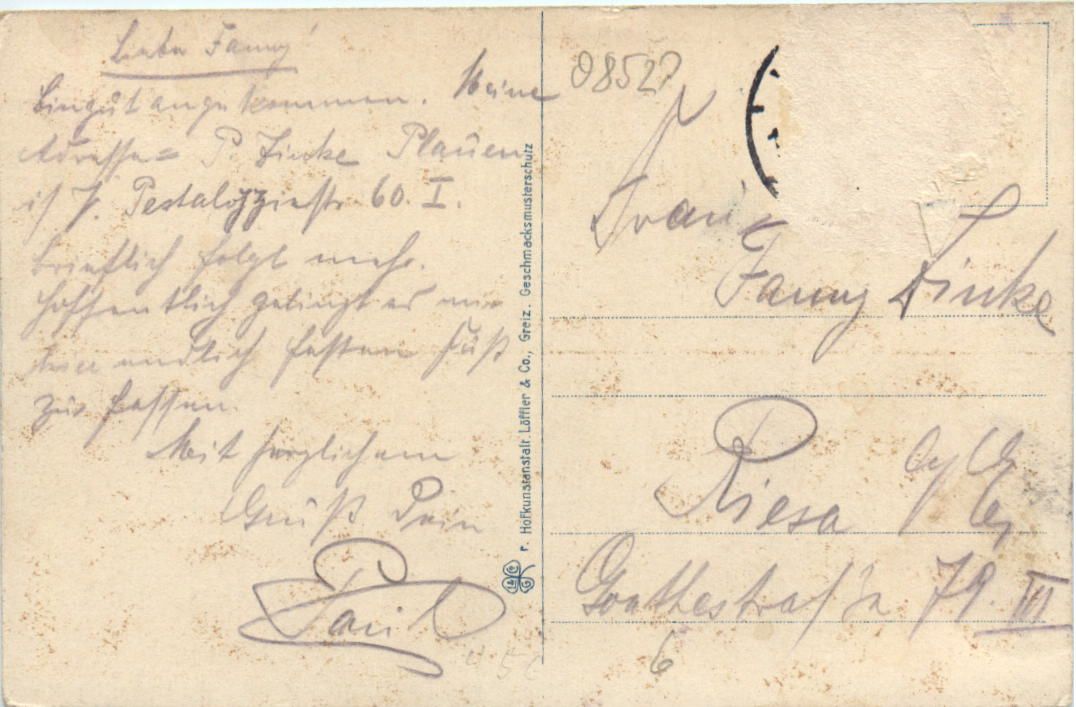 Liebe Fanny!
Bin gut angekommen. Meine
Adresse = P. Zinke Plauen
i/ V. Pestalozzistr. 60. I.
Brieflich folgt mehr.
Hoffentlich gelingt es mir
hier endlich festen Fuß
zu fassen.
Mit herzlichem
Gruß Dein
Paul
r. Hofkunstanstalt Löffler & Co., Greiz Geschmacksmusterschutz
08527
Frau
Fanny Zinke
Riesa
Goethestraße 79. III
6